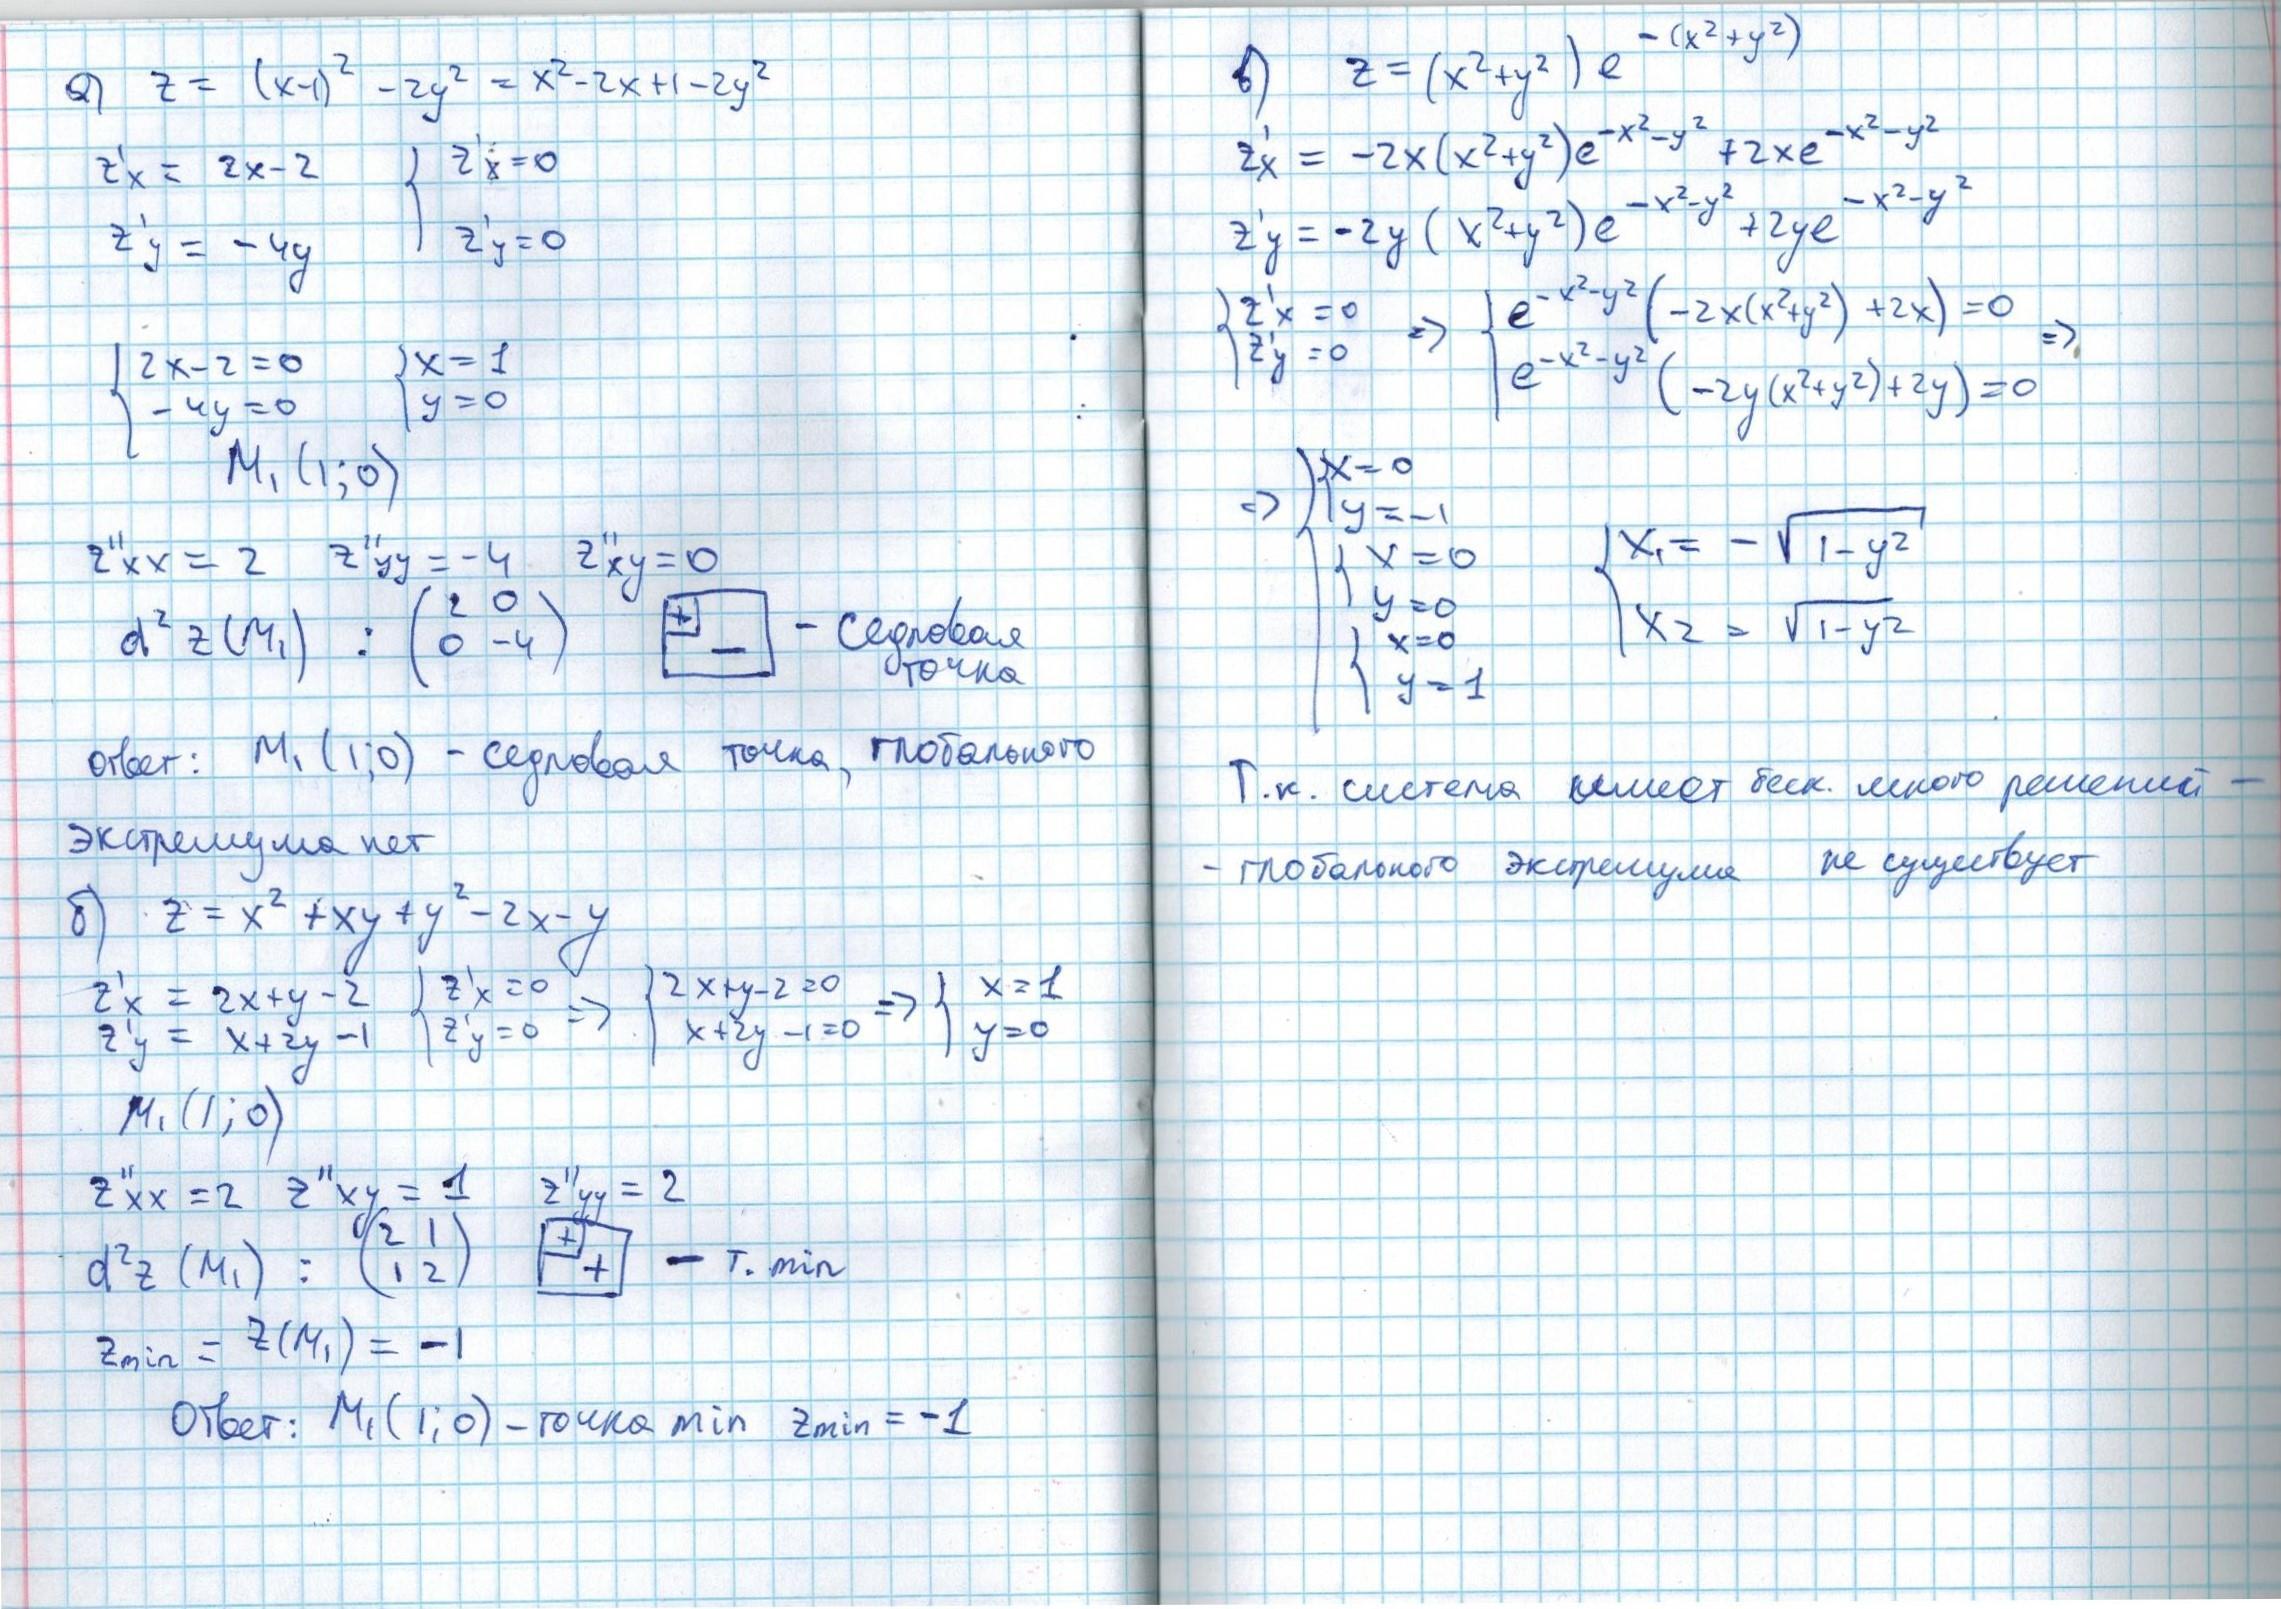 а) z = (x-1)² - 2y² = x² - 2x + 1 - 2y²
z'x = 2x-2 { z'x = 0
z'y = -4y z'y = 0
{ 2x-2=0 { x = 1
-4y=0 y = 0
M₁(1;0)
z''xx = 2 z''yy = -4 z''xy = 0
d²z(M₁) : (2 0
0 -4) + - - седловая
точка
Ответ: M₁(1;0) - седловая точка, глобального
экстремума нет
б) z = x² + xy + y² - 2x - y
z'x = 2x+y-2 { z'x = 0 => { 2x+y-2=0 => { x=1
z'y = x+2y-1 z'y = 0 x+2y-1=0 y=0
M₁(1;0)
z''xx = 2 z''xy = 1 z''yy = 2
d²z(M₁) : (2 1
1 2) + + - т. min
zmin = z(M₁) = -1
Ответ: M₁(1;0) - точка min zmin = -1
в) z = (x²+y²)e^-(x²+y²)
z'x = -2x(x²+y²)e^-x²-y² + 2xe^-x²-y²
z'y = -2y(x²+y²)e^-x²-y² + 2ye^-x²-y²
{ z'x = 0 => { e^-x²-y²(-2x(x²+y²)+2x)=0 =>
z'y = 0 e^-x²-y²(-2y(x²+y²)+2y)=0
=> { x=0
y=-1
{ x=0 { x₁ = -√1-y²
y=0
{ x=0 x₂ = √1-y²
y=1
Т.к. система имеет беск. много решений -
- глобального экстремума не существует